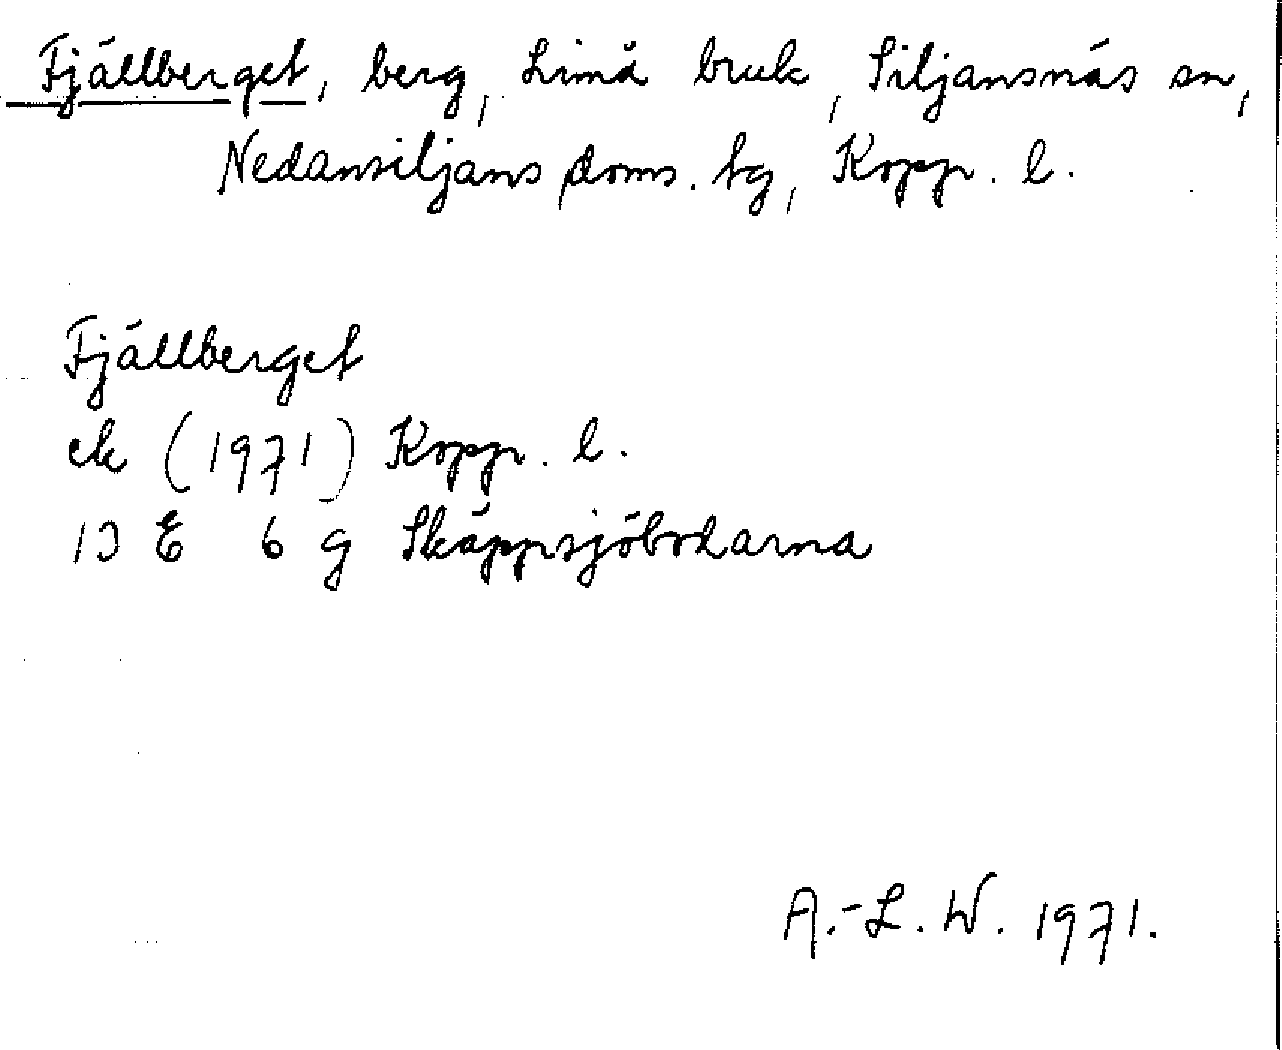 Fjällberget, berg, Limå bruk, Siljansnäs sn,
Nedansiljans doms. tg, Kopp. l.
Fjällberget
ek (1971) Kopp. l.
13 E 6 g Skäppsjöbodarna
A.-L. W. 1971.